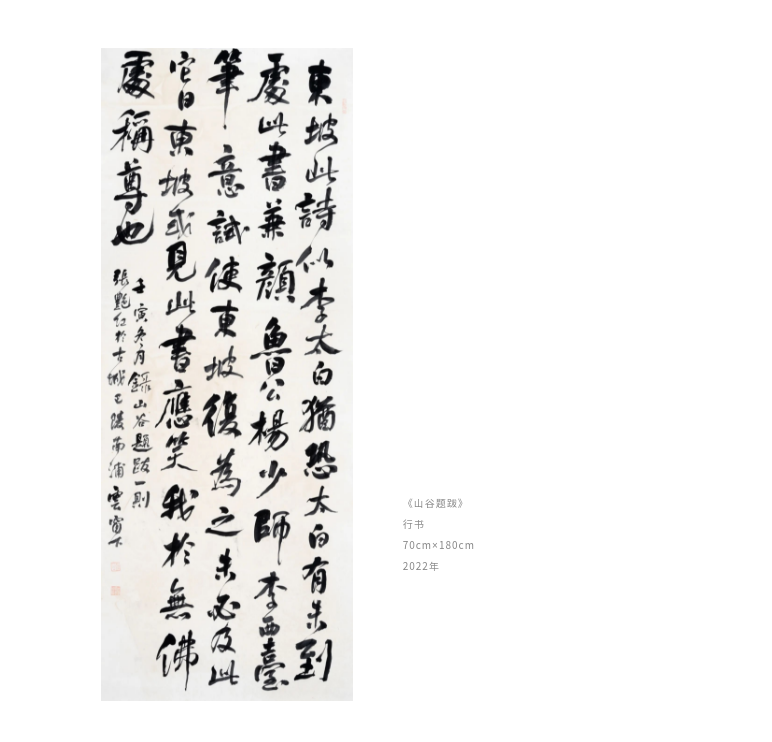 東坡此詩似李太白猶恐太白有未到
處此書兼顏魯公楊少師李西臺
筆意試使東坡復為之未必及此
它日東坡或見此書應笑我於無佛
處稱尊也
壬寅冬月錄山谷題跋一則
張艷紅於古城巴陵南浦雲窗下
《山谷题跋》
行书
70cm×180cm
2022年